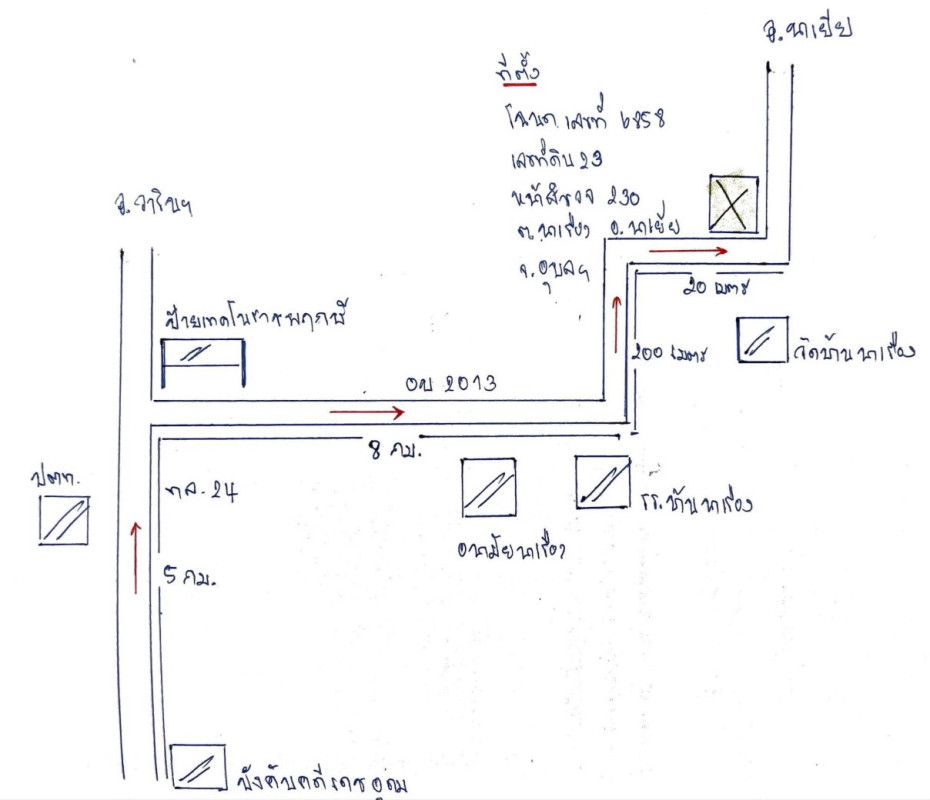 อ.นาเยีย
ที่ตั้ง
โฉนด เลขที่ 6858
เลขที่ดิน 23
หน้าสำรวจ 230
ต.นาเรือง อ.นาเยีย
จ.อุบลฯ
อ.วารินฯ
ป้ายเทคโนราชพฤกษ์
20 เมตร
200 เมตร
วัดบ้านนาเรือง
อบ 2013
8 กม.
ปตท.
ทล.24
รร.บ้านนาเรือง
อนามัยนาเรือง
5 กม.
บังคับคดีเดชอุดม